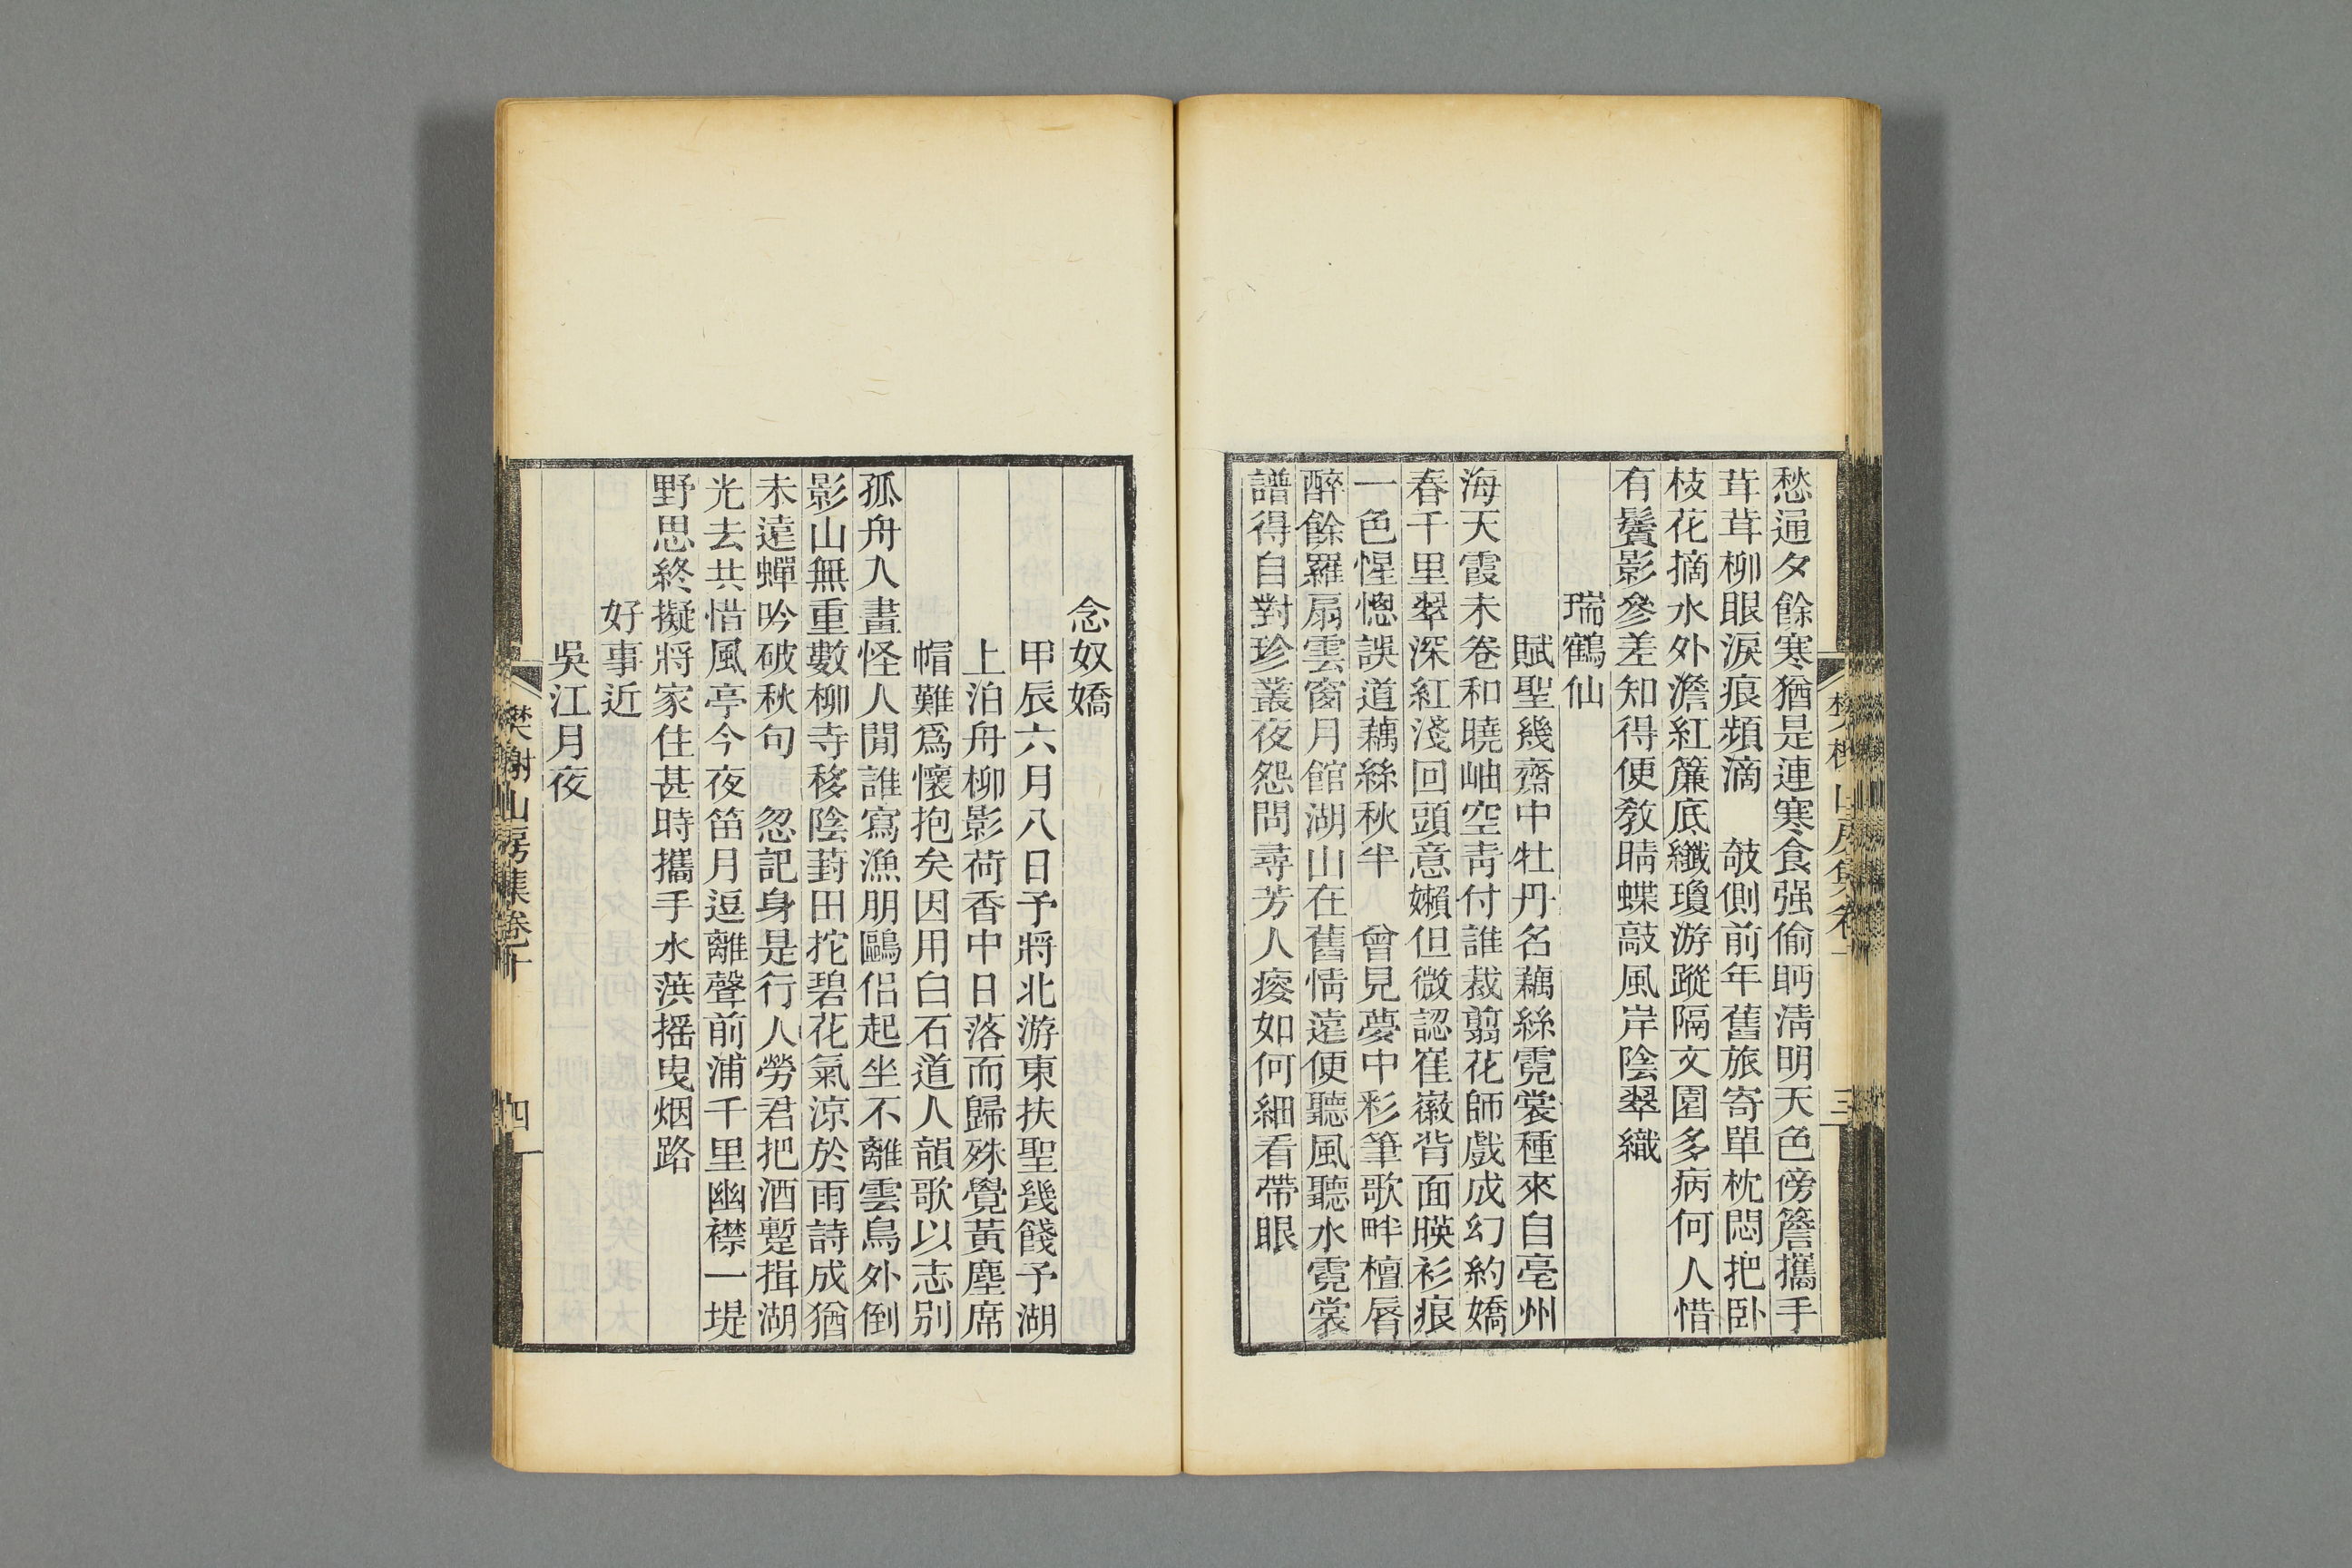 愁通夕餘寒猶是連寒食强偷眄淸明天色傍簷攜手
茸茸柳眼淚痕頻滴　敧側前年舊旅寄單枕悶把卧
枝花摘水外澹紅簾底纖瓊游蹤隔文園多病何人惜
有鬢影參差知得便敎晴蝶敲風岸陰翠織
瑞鶴仙
賦聖幾齋中牡丹名藕絲霓裳種來自亳州
海天霞未卷和曉岫空靑付誰裁翦花師戲成幻約嬌
春千里翠深紅淺回頭意嬾但微認崔徽背面暎衫痕
一色惺憁誤道藕絲秋半　曾見夢中彩筆歌畔檀脣
醉餘羅扇雲窗月館湖山在舊情遠便聽風聽水霓裳
譜得自對珍叢夜怨問尋芳人瘘如何細看帶眼
念奴嬌
甲辰六月八日予將北游東扶聖幾餞予湖
上泊舟柳影荷香中日落而歸殊覺黃塵席
帽難爲懷抱矣因用白石道人韻歌以志別
孤舟入畫怪人閒誰寫漁朋鷗侶起坐不離雲鳥外倒
影山無重數柳寺移陰葑田拕碧花氣涼於雨詩成猶
未遠蟬吟破秋句　忽記身是行人勞君把酒蹔揖湖
光去共惜風亭今夜笛月逗離聲前浦千里幽襟一堤
野思終擬將家住甚時攜手水葓摇曳烟路
好事近
吳江月夜
樊榭山房集卷十
四